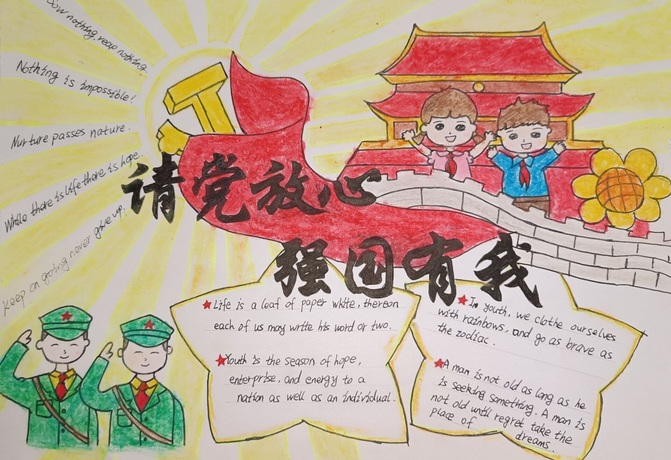 Sow nothing, reap nothing.
Nothing is impossible!
Nurture passes nature.
While there is life there is hope.
Keep on going never give up.
请党放心
强国有我
Life is a leaf of paper white, thereon
each of us may write his word or two.
Youth is the season of hope,
enterprise, and energy to a
nation as well as an individual.
In youth, we clothe ourselves
with rainbows, and go as brave as
the zodiac.
A man is not old as long as he
is seeking something. A man is
not old until regret take the
place of dreams.